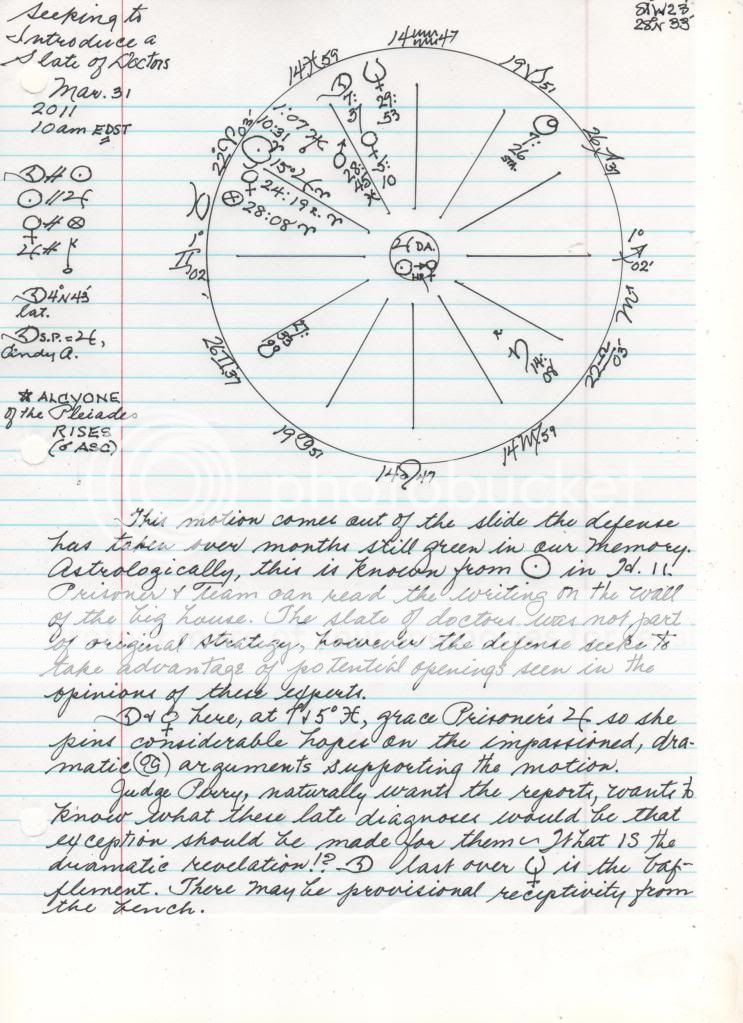 Seeking to
Introduce a
Slate of Doctors
Mar. 31
2011
10am EDST
81W23'
28N33'
☽ # ☉
☉ // ♃
♀ # ⊗
♃ #
☽ 4°N43'
lat.
☽ S.P. = ♃,
Cindy A.
* ALCYONE
of the Pleiades
RISES
(☌ ASC)
14 ♒ 47
19 ♑ 51
26 ♐ 37
1° ♐ 02'
♏
22 ♎ 03'
14 ♍ 59
14 ♌ 47
19 ♋ 51
26 ♊ 37
1° ♊ 02'
♉
22 ♈ 03'
14 ♓ 59
29:53
5:10
24:19 ℞ ♈
⊗ 28:08 ♈
♄ 14:08 ℞
♃ DA.
☉ → ♀
HR
photobucket
This motion comes out of the slide the defense
has taken over months still green in our memory.
Astrologically, this is known from ☉ in Id. 11.
Prisoner & Team can read the writing on the wall
of the big house. The slate of doctors was not part
of original strategy, however the defense seeks to
take advantage of potential openings seen in the
opinions of these experts.
☽ & ♀ here, at 7 & 5° ♓, grace Prisoner's ♃ so she
pins considerable hopes on the impassioned, dra-
matic (♋) arguments supporting the motion.
Judge Perry, naturally wants the reports, wants to
know what these late diagnoses would be that
exception should be made for them ~ What IS the
dramatic revelation!? ☽ last over ♆ is the baf-
flement. There may be provisional receptivity from
the bench.